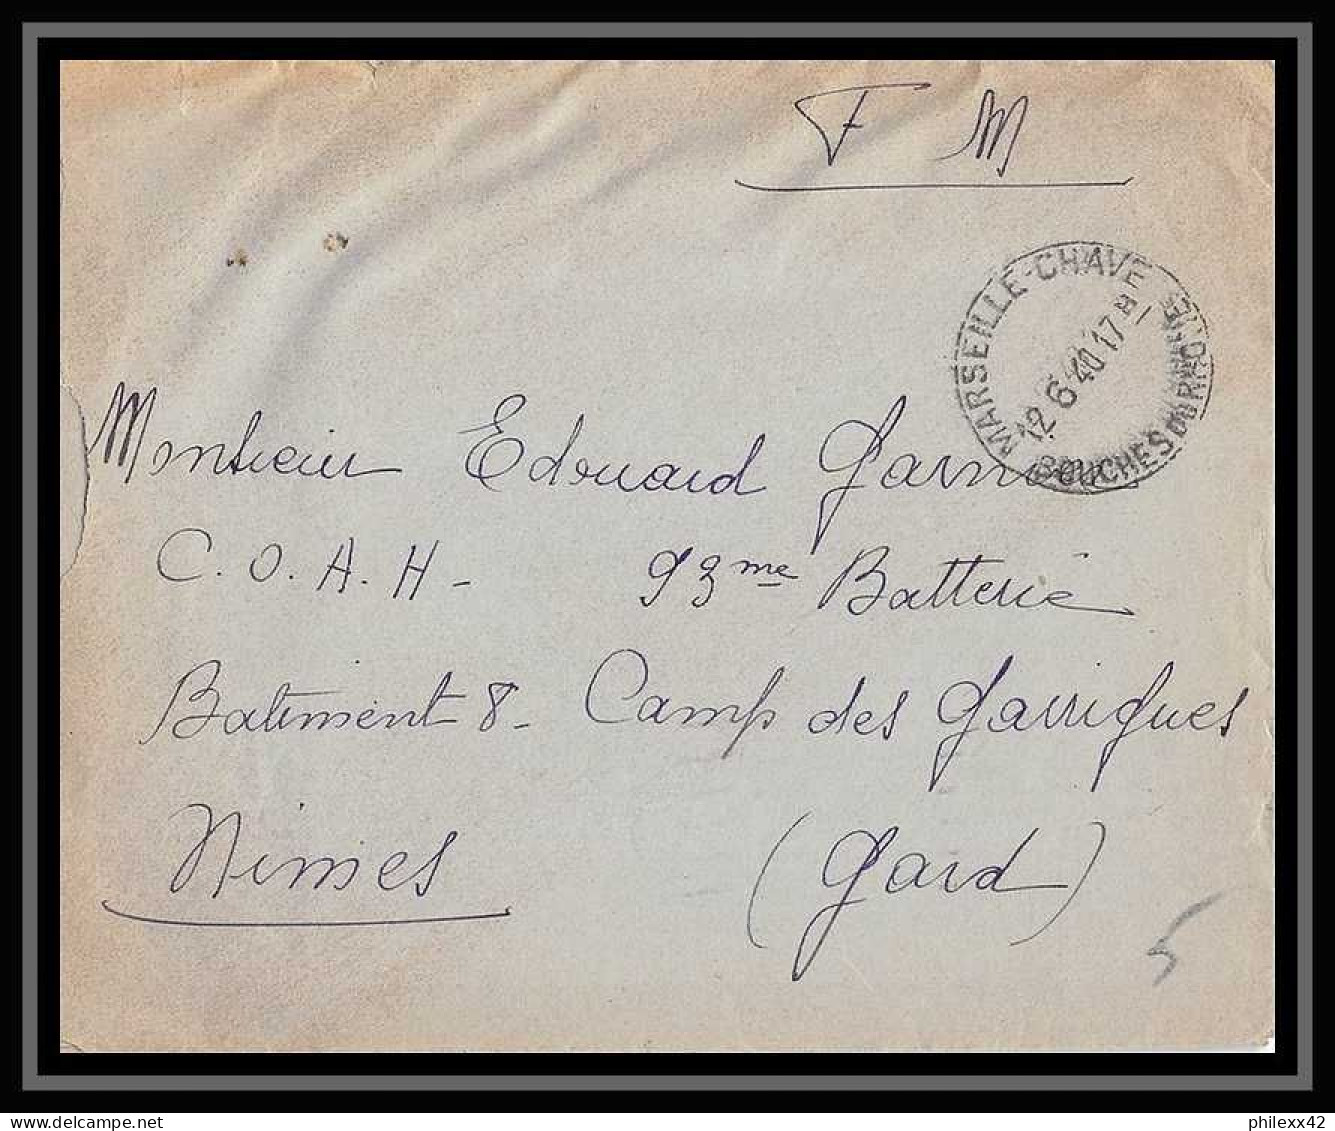 F M
MARSEILLE-CHAVE
12 6 40 17 H
BOUCHES DU RHONE
Monsieur Edouard
C.O.A.H - 93me Batterie
Batiment 8 - Camp des Garrigues
Nimes (Gard)
5
philexx42